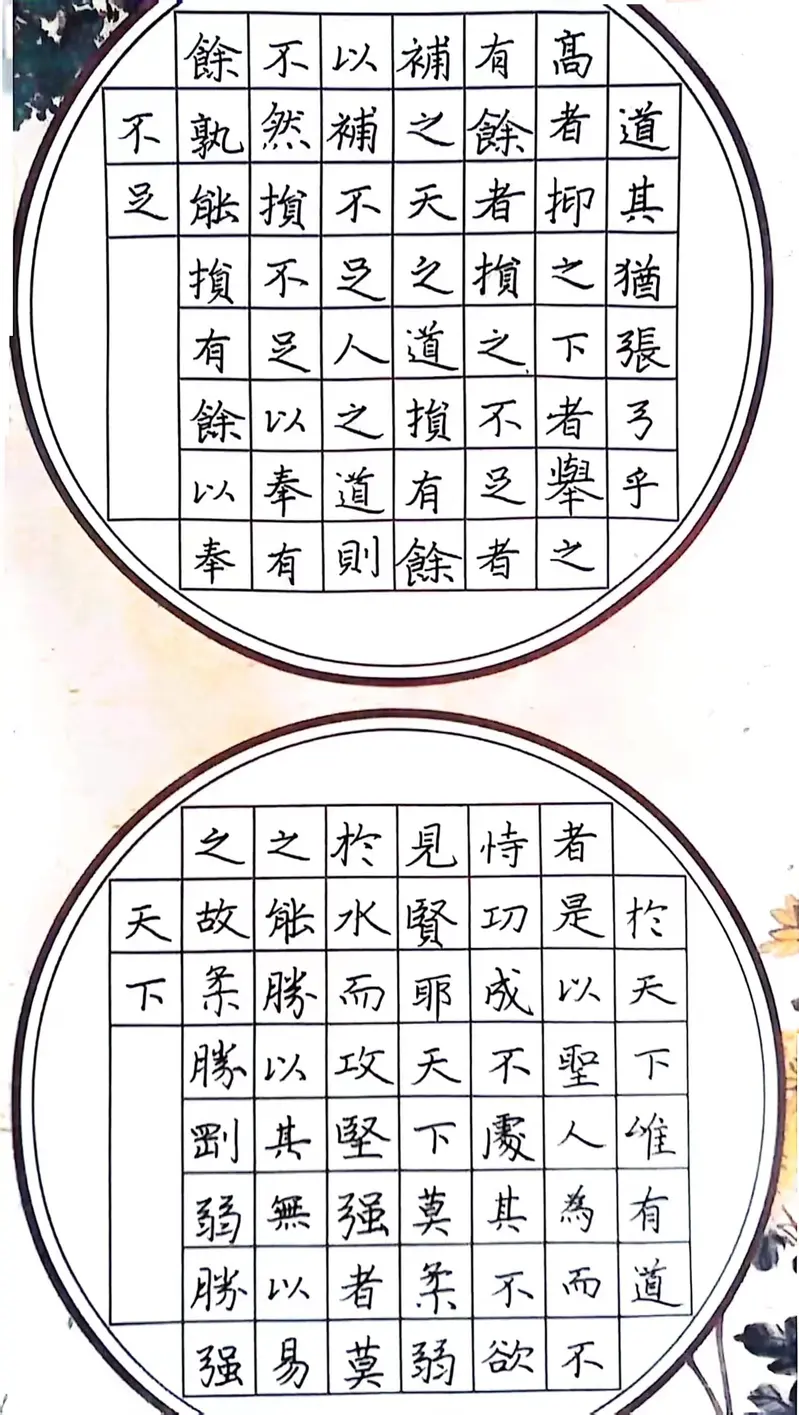 道其猶張弓乎
高者抑之下者舉之
有餘者損之不足者
補之天之道損有餘
以補不足人之道則
不然損不足以奉有
餘孰能損有餘以奉
不足
於天下唯有道
者是以聖人為而不
恃功成不處其不欲
見賢耶天下莫柔弱
於水而攻堅强者莫
之能勝以其無以易
之故柔勝剛弱勝强
天下